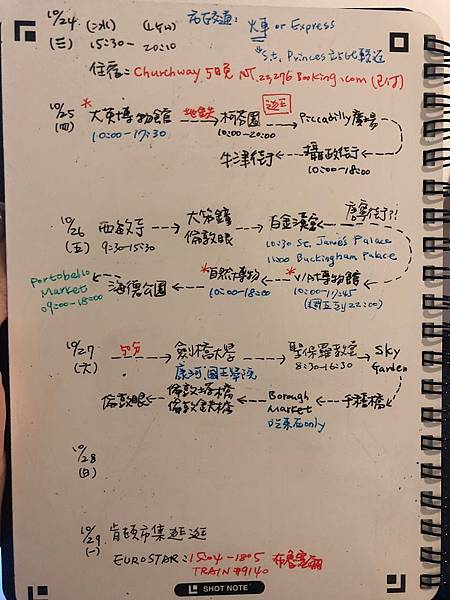 10/24 (三)
15:30-20:10
市區交通: 火車 or Express
*St. Princes 站比較近
住宿: Churchway 5晚 NT.23,276 Booking.com (已付)
10/25 (四)
*大英博物館 ---> 柯芬園 ---> Piccadilly廣場
10:00-17:30
10:00-20:00
牛津街 <--- 攝政街
10:00-18:00
10/26 (五)
西敏寺 ---> 大笨鐘 倫敦眼 ---> 白金漢宮
唐寧街?!
9:30-15:30
10:30 St. James Palace
11:00 Buckingham Palace
Portobello Market <--- 海德公園 <--- *自然博物 <--- *V/A博物館
09:00-18:00
10:00-18:00
10:00-17:45
(週五到22:00)
10/27 (六)
---> 劍橋大學 ---> 聖保羅教堂 ---> Sky Garden
康河 國王學院
8:30-16:30
倫敦眼 <--- 倫敦塔橋 倫敦鐵橋 <--- Borough Market <--- 千禧橋
only
10/28 (日)
10/29 (一)
肯頓市集逛逛
EUROSTAR: 1504-1805 布魯塞爾
TRAIN #9140
SHOT NOTE